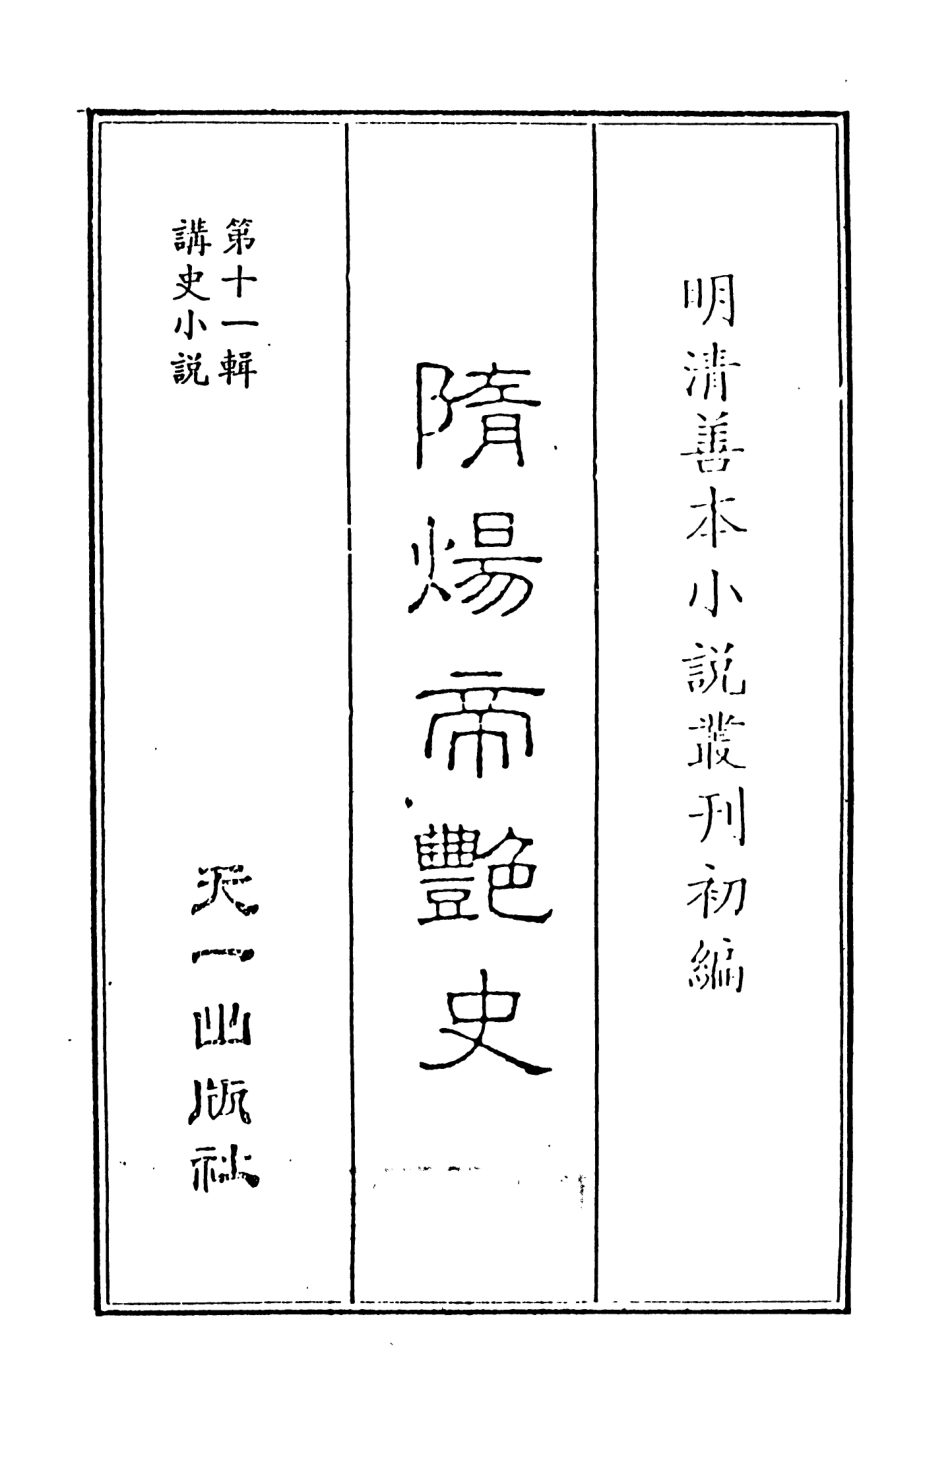 明清善本小説叢刊初編
隋煬帝艷史
第十一輯
講史小説
天一出版社